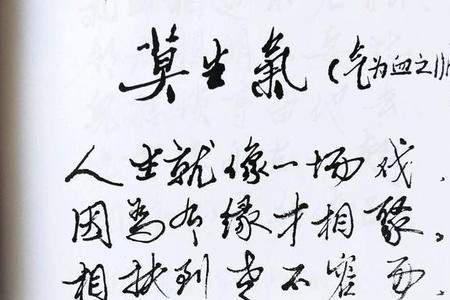 莫生氣(气为血之
人生就像一场戏,
因為有缘才相聚。
相扶到老不容易,